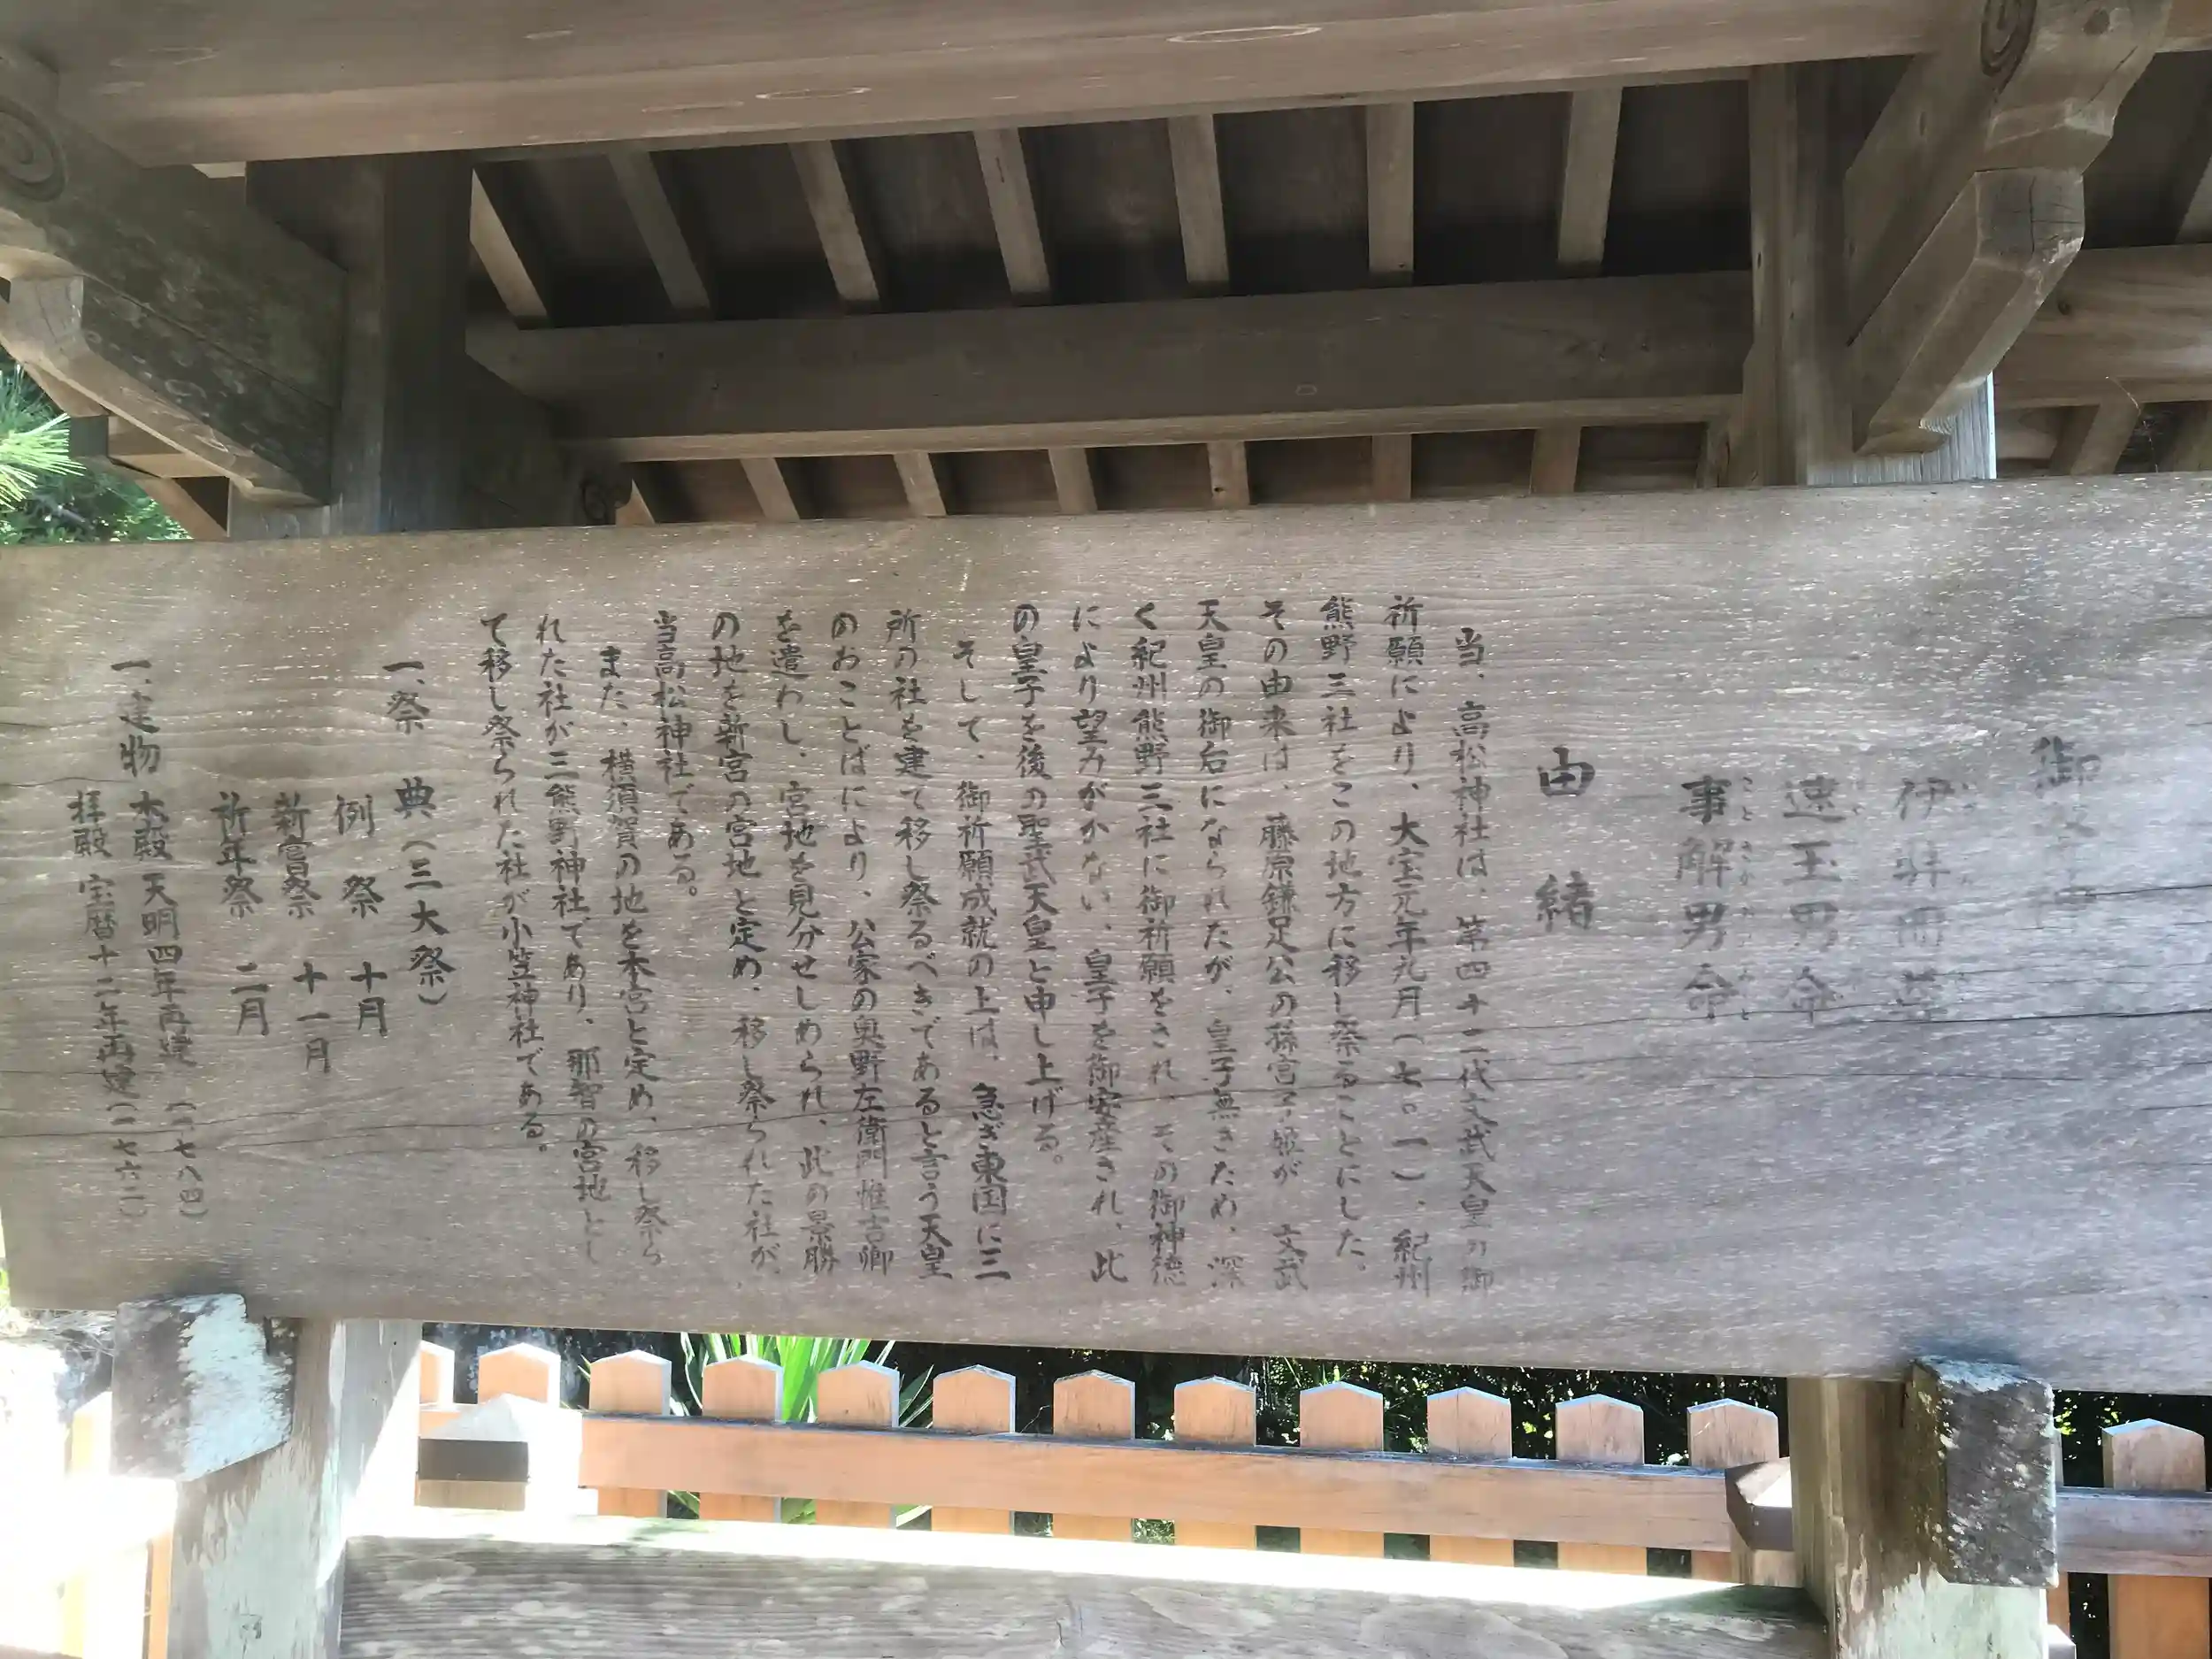 御祭神
伊弉冊尊
速玉男命
事解男命
ことさかおのみこと
由緒
当、高松神社は、第四十二代文武天皇の御
祈願により、大宝元年九月(七〇一)、紀州
熊野三社をこの地方に移し祭ることにした。
その由来は、藤原鎌足公の孫宮子姫が 文武
天皇の御后になられたが、皇子無きため、深
く紀州熊野三社に御祈願をされ、その御神徳
により望みがかない、皇子を御安産され、此
の皇子を後の聖武天皇と申し上げる。
そして、御祈願成就の上は、急ぎ東国に三
所の社を建て移し祭るべきであると言う天皇
のおことばにより、公家の奥野左衛門惟吉卿
を遣わし、宮地を見分せしめられ、此の景勝
の地を新宮の宮地と定め、移し祭られた社が、
当高松神社である。
また、横須賀の地を本宮と定め、移し祭ら
れた社が三熊野神社であり、那智の宮地とし
て移し祭られた社が小笠神社である。
一、祭 典(三大祭)
例 祭 十月
新嘗祭 十一月
祈年祭 二月
一、建物 本殿 天明四年再建(一七八四)
拝殿 宝暦十二年再建(一七六二)